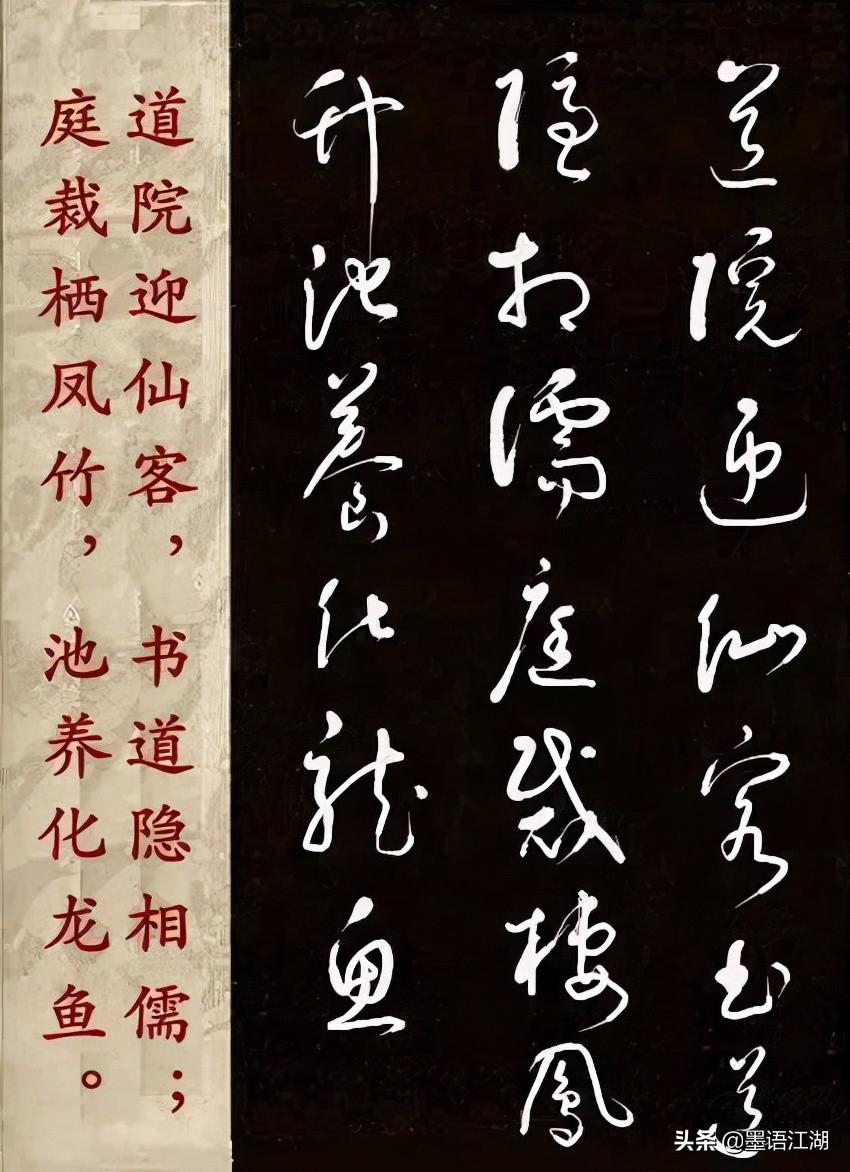 道院迎仙客書道
隱相儒庭裁棲鳳
竹池養化龍魚
道院迎仙客，书道隐相儒；
庭裁栖凤竹，池养化龙鱼。
头条 @墨语江湖